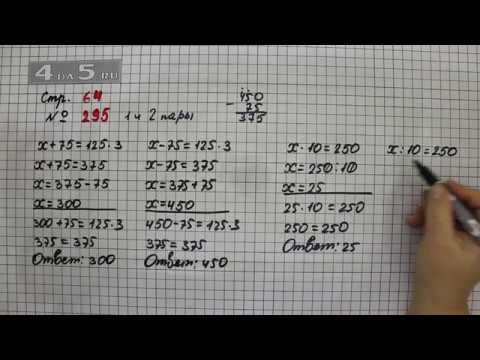 4 DA 5.RU
Стр. 64
№ 295 1 и 2 пары
450
- 75
375
x+75=125·3
x+75=375
x=375-75
x=300
300+75=125·3
375=375
Ответ: 300
x-75=125·3
x-75=375
x=375+75
x=450
450-75=125·3
375=375
Ответ: 450
x·10=250
x=250:10
x=25
25·10=250
250=250
Ответ: 25
x:10=250